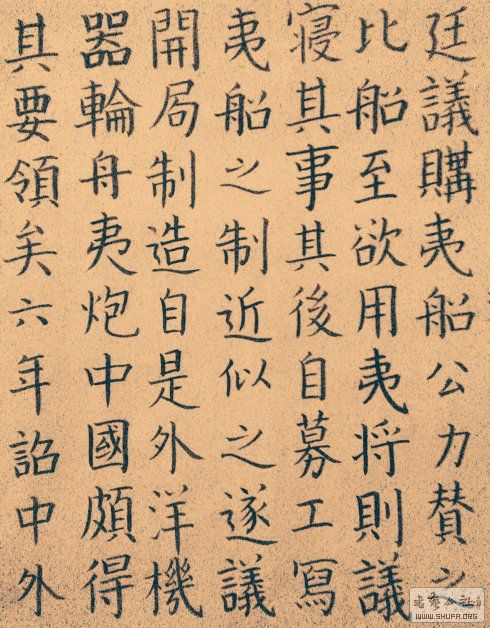 廷議購夷船公力賛之
比船至欲用夷将則議
寝其事其後自募工寫
夷船之制近似之遂議
開局制造自是外洋機
器輪舟夷炮中國頗得
其要領矣六年詔中外
WWW.SHUFA.ORG